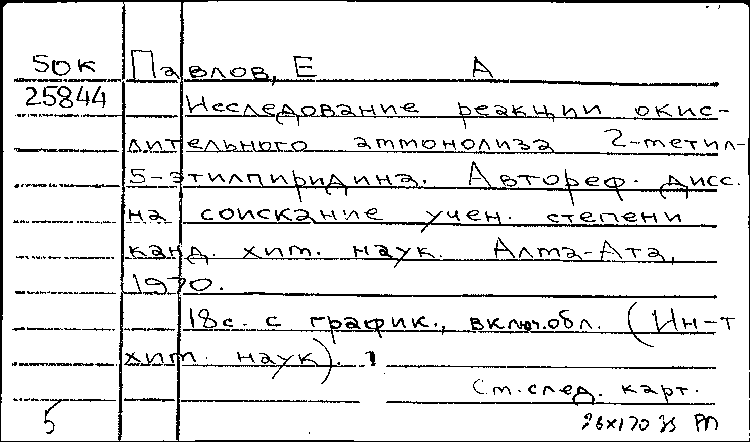 50К Павлов, Е А
25844 Исследование реакции окис-
лительного аммонолиза 2-метил-
5-этилпиридина. Автореф. дисс.
на соискание учен. степени
канд. хим. наук. Алма-Ата,
1970.
18с. с график., включ.обл. (Ин-т
хим. наук).
См.след. карт.
5